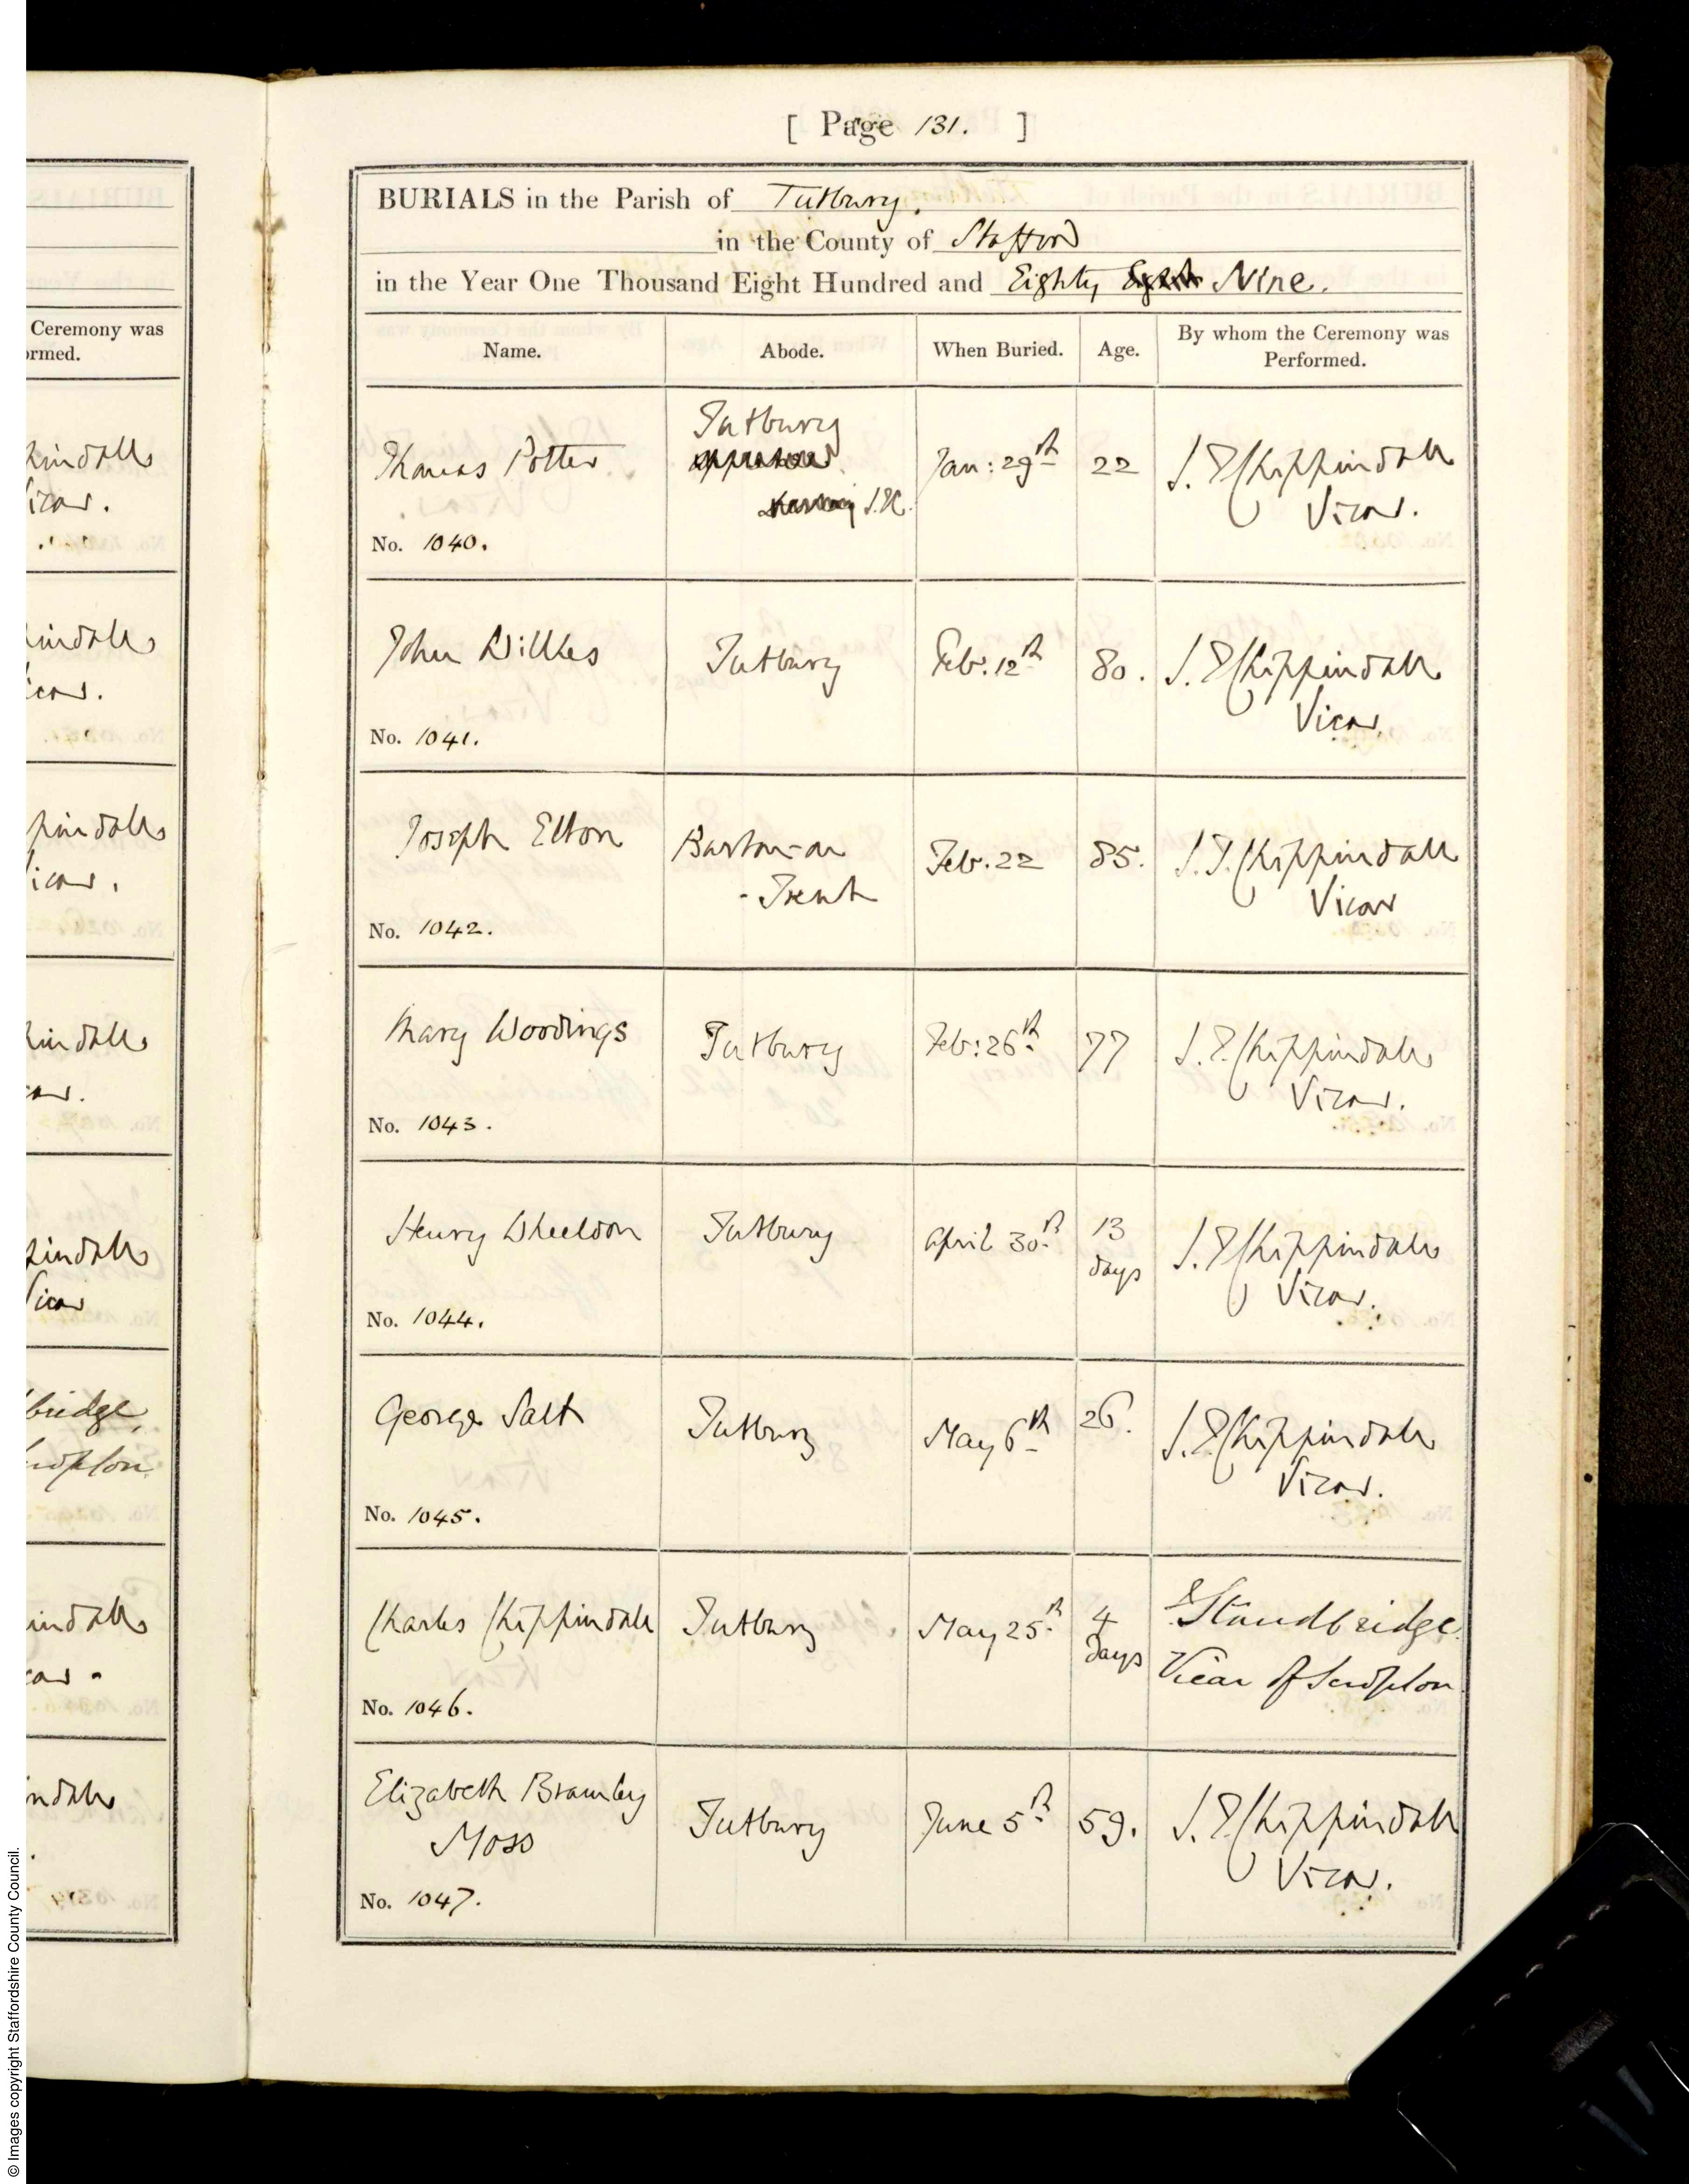 [ Page 131. ]
BURIALS in the Parish of Tutbury.
in the County of Stafford
in the Year One Thousand Eight Hundred and Eighty Eight Nine.
Name. Abode. When Buried. Age. By whom the Ceremony was Performed.
Thomas Potter Tutbury Jan: 29th 22 J. T. Chippindall
Vicar.
No. 1040.
John Wilkes Tutbury Feb. 12th 80. J. T. Chippindall
Vicar.
No. 1041.
Joseph Elton Burton-on Feb. 22 85. J. T. Chippindall
-Trent Vicar
No. 1042.
Mary Woodings Tutbury Feb: 26th 77 J. T. Chippindall
Vicar.
No. 1043.
Henry Wheeldon Tutbury April 30th 13 J. T. Chippindall
days Vicar.
No. 1044.
George Salt Tutbury May 6th 26. J. T. Chippindall
Vicar.
No. 1045.
Charles Chippindall Tutbury May 25th 4 Standbridge
days Vicar of Scropton
No. 1046.
Elizabeth Bramley Tutbury June 5th 59. J. T. Chippindall
Moss Vicar.
No. 1047.
Ceremony was
ormed.
© Images copyright Staffordshire County Council.